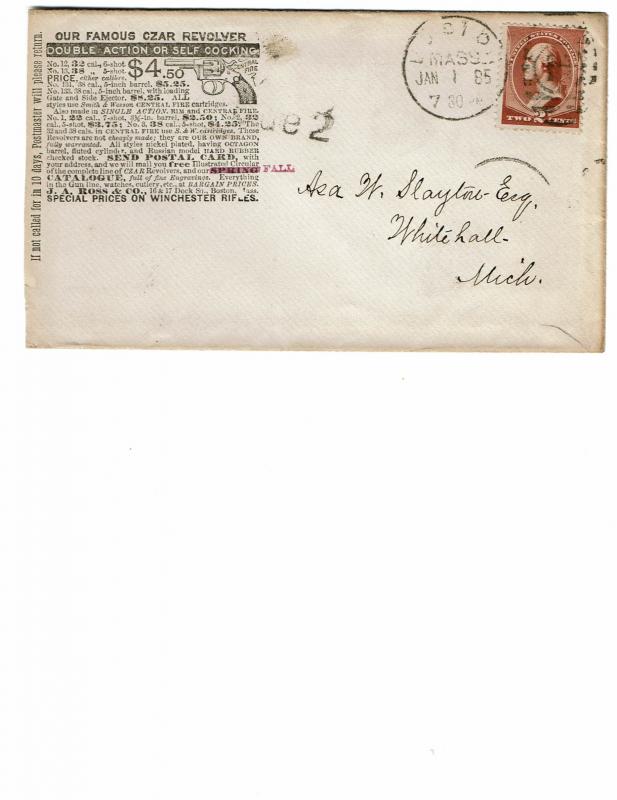 If not called for in 10 days, Postmaster will please return.
OUR FAMOUS CZAR REVOLVER
DOUBLE ACTION OR SELF COCKING
No. 12, 32 cal., 6-shot
No. 13, 38 „ 5-shot.
$4.50
PRICE, either calibre.
CENTRAL FIRE
No. 131, 38 cal., 5-inch barrel, $5.25.
No. 133, 38 cal., 5-inch barrel, with loading
Gate and Side Ejector. $8.25. ALL
styles use Smith & Wesson CENTRAL FIRE cartridges.
Also made in SINGLE ACTION. RIM and CENTRAL FIRE.
No. 1, 22 cal., 7-shot, 3½-in. barrel, $2.50; No. 2, 32
cal., 5-shot, $3.75; No. 3, 38 cal., 5-shot, $4.25. The
32 and 38 cals. in CENTRAL FIRE use S. & W. cartridges. These
Revolvers are not cheaply made; they are OUR OWN BRAND,
fully warranted. All styles nickel plated, having OCTAGON
barrel, fluted cylinder, and Russian model HARD RUBBER
checked stock. SEND POSTAL CARD, with
your address, and we will mail you free Illustrated Circular
of the complete line of CZAR Revolvers, and our SPRING FALL
CATALOGUE, full of fine Engravings. Everything
in the Gun line, watches, cutlery, etc., at BARGAIN PRICES.
J. A. ROSS & CO., 16 & 17 Dock St., Boston, Mass.
SPECIAL PRICES ON WINCHESTER RIFLES.
ue 2
STO
MASS.
JAN 1 85
7 30
UNITED STATES POSTAGE
TWO 2 CENTS
Asa W. Slayton Esq,
Whitehall
Mich.